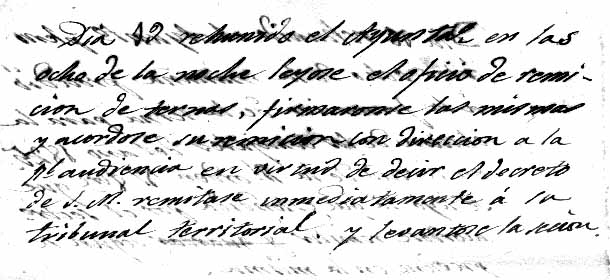 Dia 12 rehunido el Ayuntal. en las
ocho de la noche leyose el oficio de remi-
cion de ternas, firmaronse las mismas
y acordose su remicion con direccion a la
Rl audiencia en virtud de decir el decreto
de S. M. remitase inmediatamente á su
tribunal territorial y levantose la sesion.